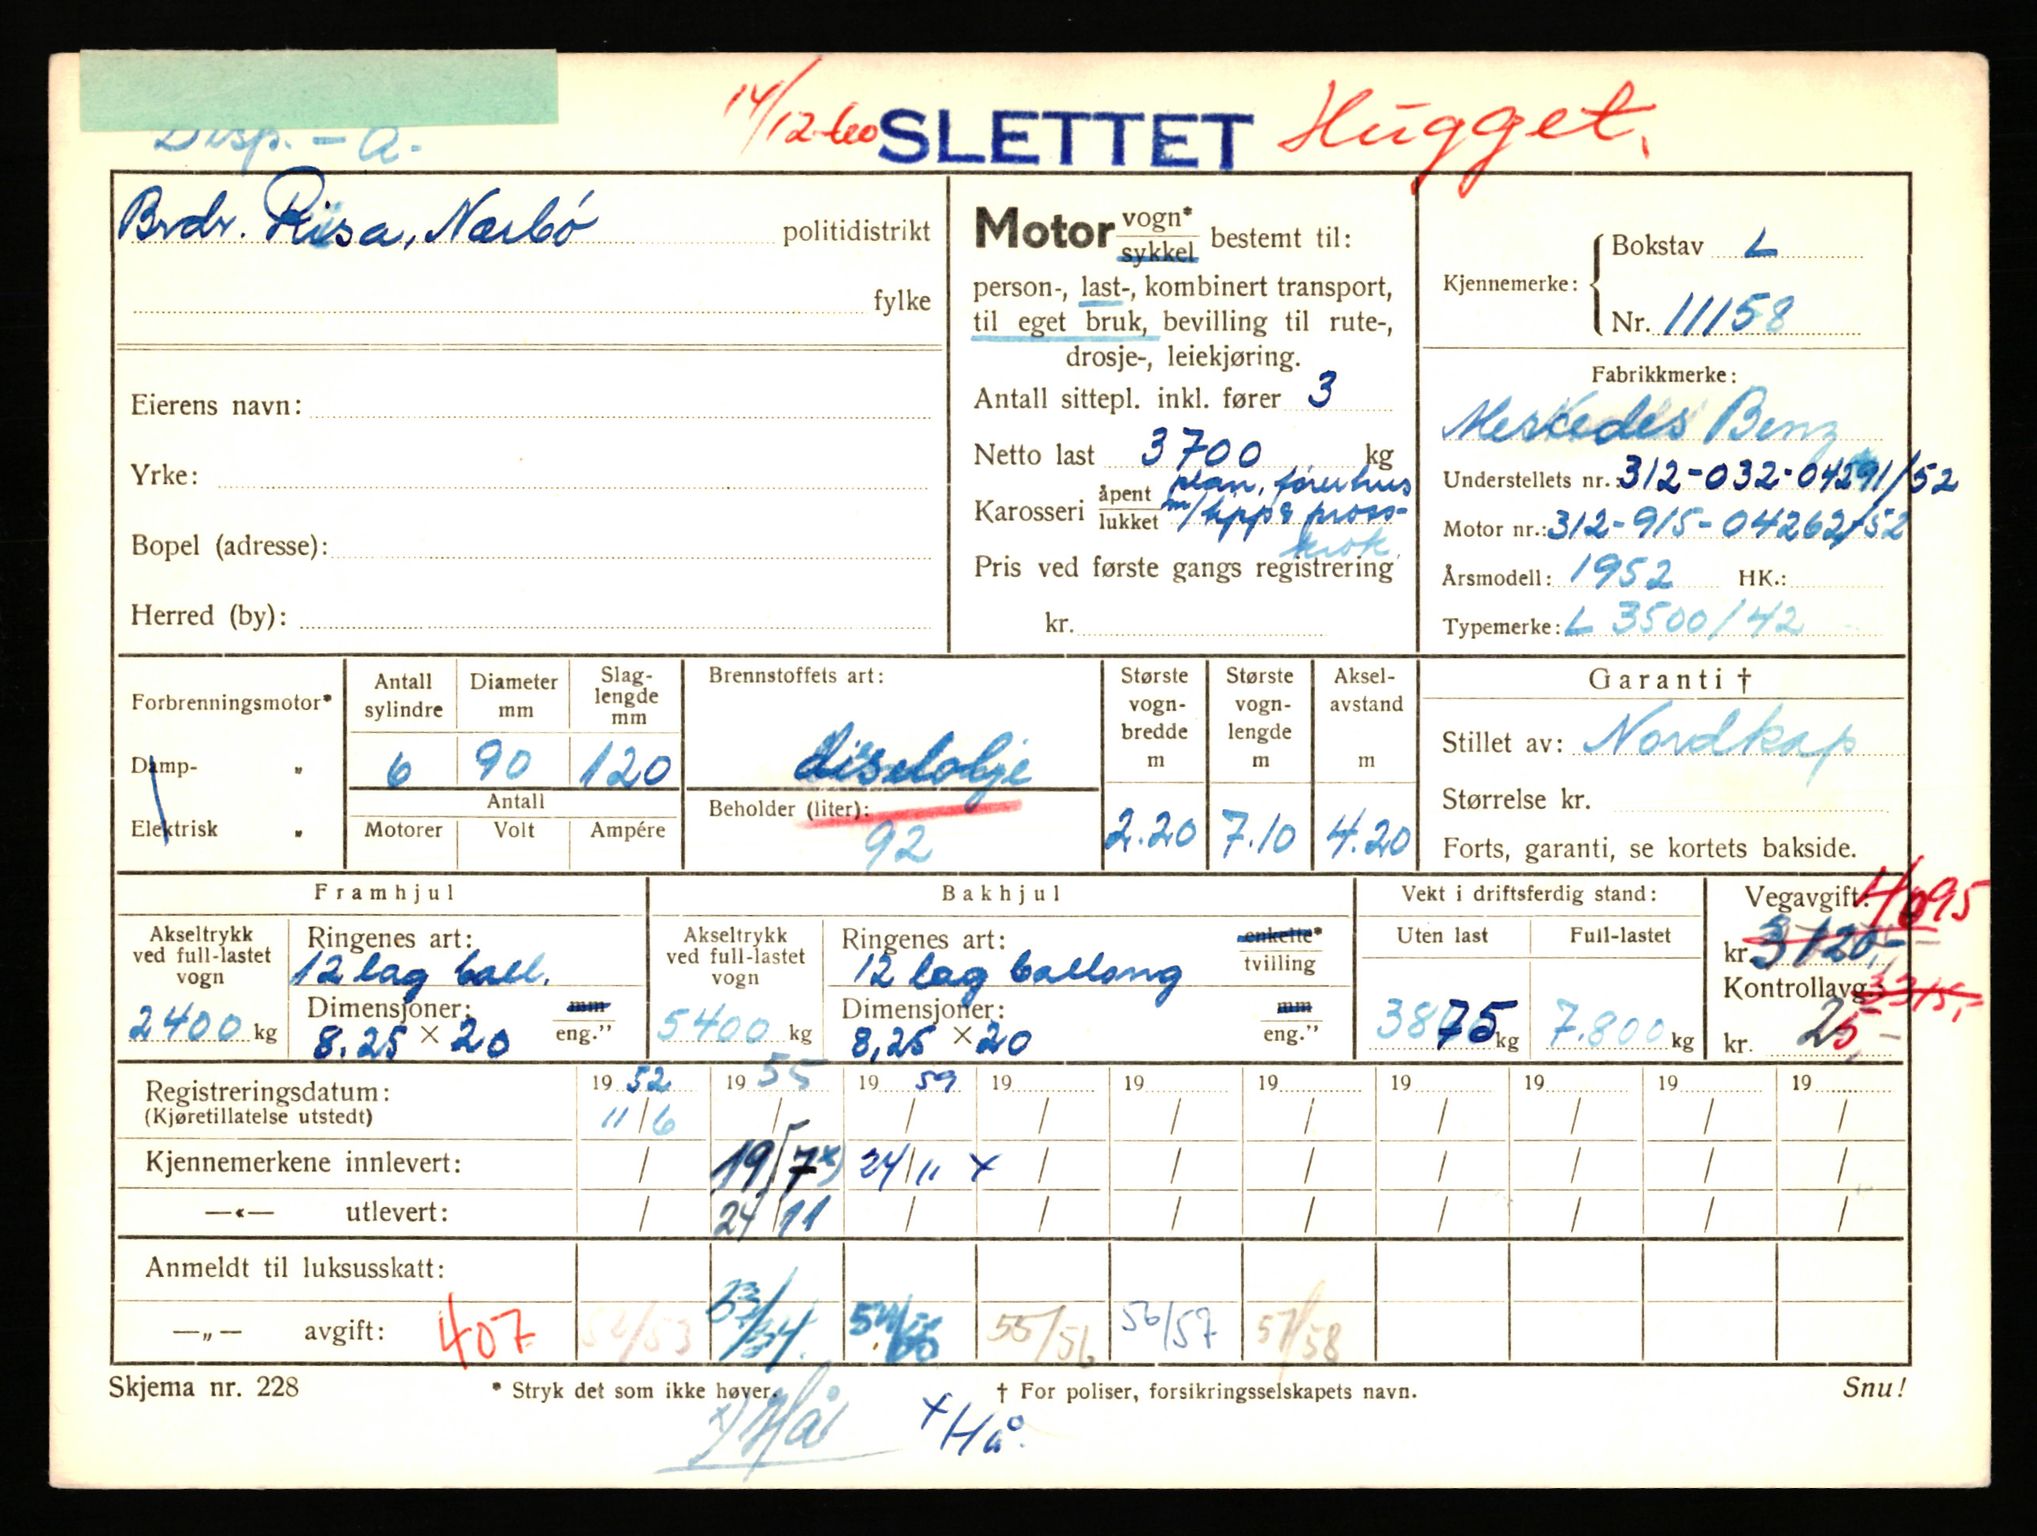 Disp. - A.
14/12-60 SLETTET Hugget.
Brdr. Risa, Nærbö politidistrikt
fylke
Eierens navn:
Yrke:
Bopel (adresse):
Herred (by):
Motor vogn* sykkel bestemt til:
person-, last-, kombinert transport,
til eget bruk, bevilling til rute-,
drosje-, leiekjøring.
Antall sittepl. inkl. fører 3
Netto last 3700 kg
Karosseri åpent lukket plan, førerhus
m/tipp & pross-
krok
Pris ved første gangs registrering
kr.
Kjennemerke: Bokstav L
Nr. 11158
Fabrikkmerke:
Merkedes Benz
Understellets nr.: 312-032-04291/52
Motor nr.: 312-915-04262/52
Årsmodell: 1952 HK.:
Typemerke: L 3500/42
Forbrenningsmotor*
Damp- „
Elektrisk „
Antall sylindre 6
Diameter mm 90
Slag-lengde mm 120
Antall
Motorer Volt Ampére
Brennstoffets art:
diselolje
Beholder (liter):
92
Største vogn-bredde m 2.20
Største vogn-lengde m 7.10
Aksel-avstand m 4.20
Garanti †
Stillet av: Nordkap
Størrelse kr.
Forts, garanti, se kortets bakside.
Framhjul
Akseltrykk ved full-lastet vogn
2400 kg
Ringenes art:
12 lag ball.
Dimensjoner: mm eng.”
8.25 × 20
Bakhjul
Akseltrykk ved full-lastet vogn
5400 kg
Ringenes art: enkelte* tvilling
12 lag ballong
Dimensjoner: mm eng.”
8,25 × 20
Vekt i driftsferdig stand:
Uten last Full-lastet
3875 kg 7.800 kg
Vegavgift: 4095
kr. 3120,-
Kontrollavg.: 3315,-
kr. 25,-
Registreringsdatum: 19 52 19 55 19 59 19 19 19 19 19 19 19
(Kjøretillatelse utstedt) 11/6 / / / / / / / / /
Kjennemerkene innlevert: / 19/7 x) 24/11 x / / / / / / /
—«— utlevert: / 24/11 / / / / / / / /
Anmeldt til luksusskatt:
—„— avgift: 407 52/53 53/54 55/56 56/57 57/58
Skjema nr. 228 * Stryk det som ikke høver. † For poliser, forsikringsselskapets navn. Snu!
x) Hå x Hå.